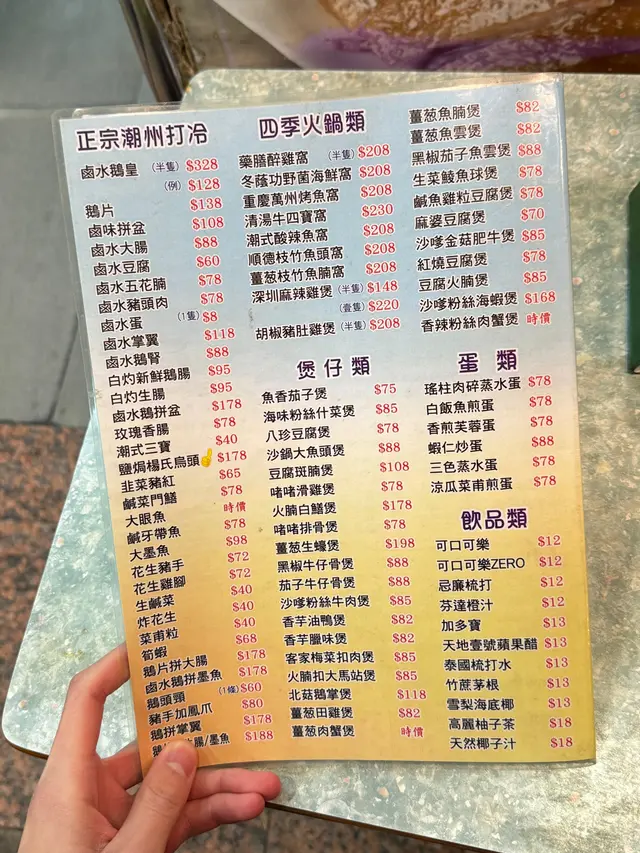 正宗潮州打冷
鹵水鵝皇 (半隻) $328
(例) $128
鵝片 $138
鹵味拼盆 $108
鹵水大腸 $88
鹵水豆腐 $60
鹵水五花腩 $78
鹵水豬頭肉 $78
鹵水蛋 (1隻) $8
鹵水掌翼 $118
鹵水鵝腎 $88
白灼新鮮鵝腸 $95
白灼生腸 $95
鹵水鵝拼盆 $178
玫瑰香腸 $78
潮式三寶 $40
鹽焗楊氏烏頭 $178
韭菜豬紅 $65
鹹菜門鱔 $78
大眼魚 時價
鹹牙帶魚 $78
大墨魚 $98
花生豬手 $72
花生雞腳 $72
生鹹菜 $40
炸花生 $40
菜甫粒 $40
筍蝦 $68
鵝片拼大腸 $178
鹵水鵝拼墨魚 $178
鵝頭頸 (1條) $60
豬手加鳳爪 $80
鵝拼掌翼 $178
腸/墨魚 $188
四季火鍋類
藥膳醉雞窩 (半隻) $208
冬蔭功野菌海鮮窩 $208
重慶萬州烤魚窩 $208
清湯牛四寶窩 $230
潮式酸辣魚窩 $208
順德枝竹魚頭窩 $208
薑葱枝竹魚腩窩 $208
深圳麻辣雞煲 (半隻) $148
(壹隻) $220
胡椒豬肚雞煲 (半隻) $208
煲仔類
魚香茄子煲 $75
海味粉絲什菜煲 $85
八珍豆腐煲 $78
沙鍋大魚頭煲 $88
豆腐斑腩煲 $108
啫啫滑雞煲 $78
火腩白鱔煲 $178
啫啫排骨煲 $78
薑葱生蠔煲 $198
黑椒牛仔骨煲 $88
茄子牛仔骨煲 $88
沙嗲粉絲牛肉煲 $85
香芋油鴨煲 $82
香芋臘味煲 $82
客家梅菜扣肉煲 $85
火腩扣大馬站煲 $85
北菇鵝掌煲 $118
薑葱田雞煲 $82
薑葱肉蟹煲 時價
薑葱魚腩煲 $82
薑葱魚雲煲 $82
黑椒茄子魚雲煲 $88
生菜鯪魚球煲 $78
鹹魚雞粒豆腐煲 $78
麻婆豆腐煲 $70
沙嗲金菇肥牛煲 $85
紅燒豆腐煲 $78
豆腐火腩煲 $85
沙嗲粉絲海蝦煲 $168
香辣粉絲肉蟹煲 時價
蛋 類
瑤柱肉碎蒸水蛋 $78
白飯魚煎蛋 $78
香煎芙蓉蛋 $78
蝦仁炒蛋 $88
三色蒸水蛋 $78
涼瓜菜甫煎蛋 $78
飲品類
可口可樂 $12
可口可樂ZERO $12
忌廉梳打 $12
芬達橙汁 $12
加多寶 $13
天地壹號蘋果醋 $13
泰國梳打水 $13
竹蔗茅根 $13
雪梨海底椰 $13
高麗柚子茶 $18
天然椰子汁 $18